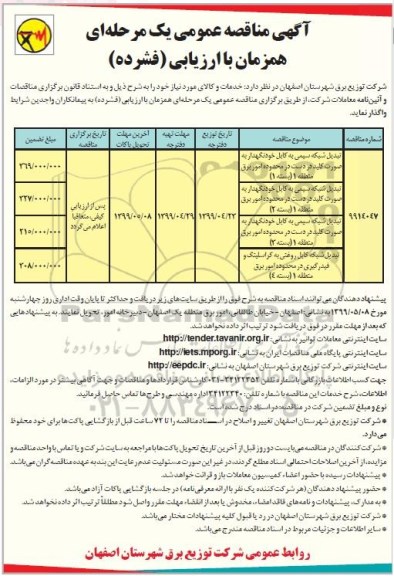 آگهی مناقصه عمومی یک مرحله‌ای
همزمان با ارزیابی (فشرده)
شرکت توزیع برق شهرستان اصفهان در نظر دارد: خدمات و کالای مورد نیاز خود را به شرح ذیل و به استناد قانون برگزاری مناقصات
و آئین‌نامه معاملات شرکت، از طریق برگزاری مناقصه عمومی یک مرحله‌ای همزمان با ارزیابی (فشرده) به پیمانکاران واجدین شرایط
واگذار نماید.
شماره مناقصه موضوع مناقصه تاریخ توزیع دفترچه مهلت تهیه دفترچه آخرین مهلت تحویل پاکات تاریخ برگزاری مناقصه مبلغ تضمین
۹۹۱۴۰۴۷ ۱۳۹۹/۰۴/۲۲ ۱۳۹۹/۰۴/۲۹ ۱۳۹۹/۰۵/۰۸ پس از ارزیابی کیفی متعاقبا اعلام می گردد
تبدیل شبکه سیمی به کابل خودنگهدار به صورت کلید در دست در محدوده امور برق منطقه ۱ (بسته ۱) ۳۶۹/۰۰۰/۰۰۰
تبدیل شبکه سیمی به کابل خودنگهدار به صورت کلید در دست در محدوده امور برق منطقه ۱ (بسته ۲) ۳۲۷/۰۰۰/۰۰۰
تبدیل شبکه سیمی به کابل خودنگهدار به صورت کلید در دست در محدوده امور برق منطقه ۱ (بسته ۳) ۲۱۵/۰۰۰/۰۰۰
تبدیل شبکه کابل روغنی به کراسلینک و فیدرگیری در محدوده امور برق منطقه ۱ (بسته ٤) ۳۰۸/۰۰۰/۰۰۰
پیشنهاد دهندگان می‌توانند اسناد مناقصه به شرح فوق را از طریق سایت‌های زیر دریافت و حداکثر تا پایان وقت اداری روز چهارشنبه
مورخ ۱۳۹۹/۰۵/۰۸ به نشانی: اصفهان - خیابان طالقانی، امور برق منطقه یک اصفهان - دبیرخانه امور، تحویل نمایند. به پیشنهادهایی
که بعد از مهلت مقرر در فوق دریافت شود ترتیب اثر داده نخواهد شد.
سایت اینترنتی معاملات توانیر به نشانی: http://tender.tavanir.org.ir
سایت اینترنتی پایگاه ملی مناقصات ایران به نشانی: http://iets.mporg.ir
سایت اینترنتی شرکت توزیع برق شهرستان اصفهان به نشانی: http://eepdc.ir
نوع و مبلغ تضمین شرکت در مناقصه: در اسناد درج شده است.
* شرکت توزیع برق شهرستان اصفهان تغییر و اصلاح در اسناد مناقصه را تا ۷۲ ساعت قبل از بازگشایی پاکت‌ها برای خود محفوظ
می‌دارد.
* شرکت‌کنندگان در مناقصه می‌بایست دو روز قبل از آخرین تاریخ تحویل پاکت‌ها با مراجعه به سایت شرکت و یا تماس با واحد مناقصه و
مزایده، از آخرین اصلاحات احتمالی اسناد مطلع گردند، در غیر این صورت مسئولیت عدم رعایت این بند به عهده مناقصه‌گران می‌باشد.
* پیشنهادات رسیده با حضور اعضاء کمیسیون معاملات باز و قرائت خواهد شد.
* حضور پیشنهاد دهندگان (هر شرکت‌کننده یک نفر با ارائه معرفی‌نامه) در جلسه بازگشایی پاکات آزاد می‌باشد.
* به مدارک، پیشنهادات و نامه‌های فاقد امضاء، مخدوش یا بعد از انقضاء مهلت مقرر واصل شود مطلقاً ترتیب اثر داده نخواهد شد.
* شرکت توزیع برق شهرستان اصفهان در رد یا قبول کلیه پیشنهادات مختار می‌باشد.
* سایر اطلاعات و جزئیات مربوط در اسناد مناقصه مندرج می‌باشد.
روابط عمومی شرکت توزیع برق شهرستان اصفهان